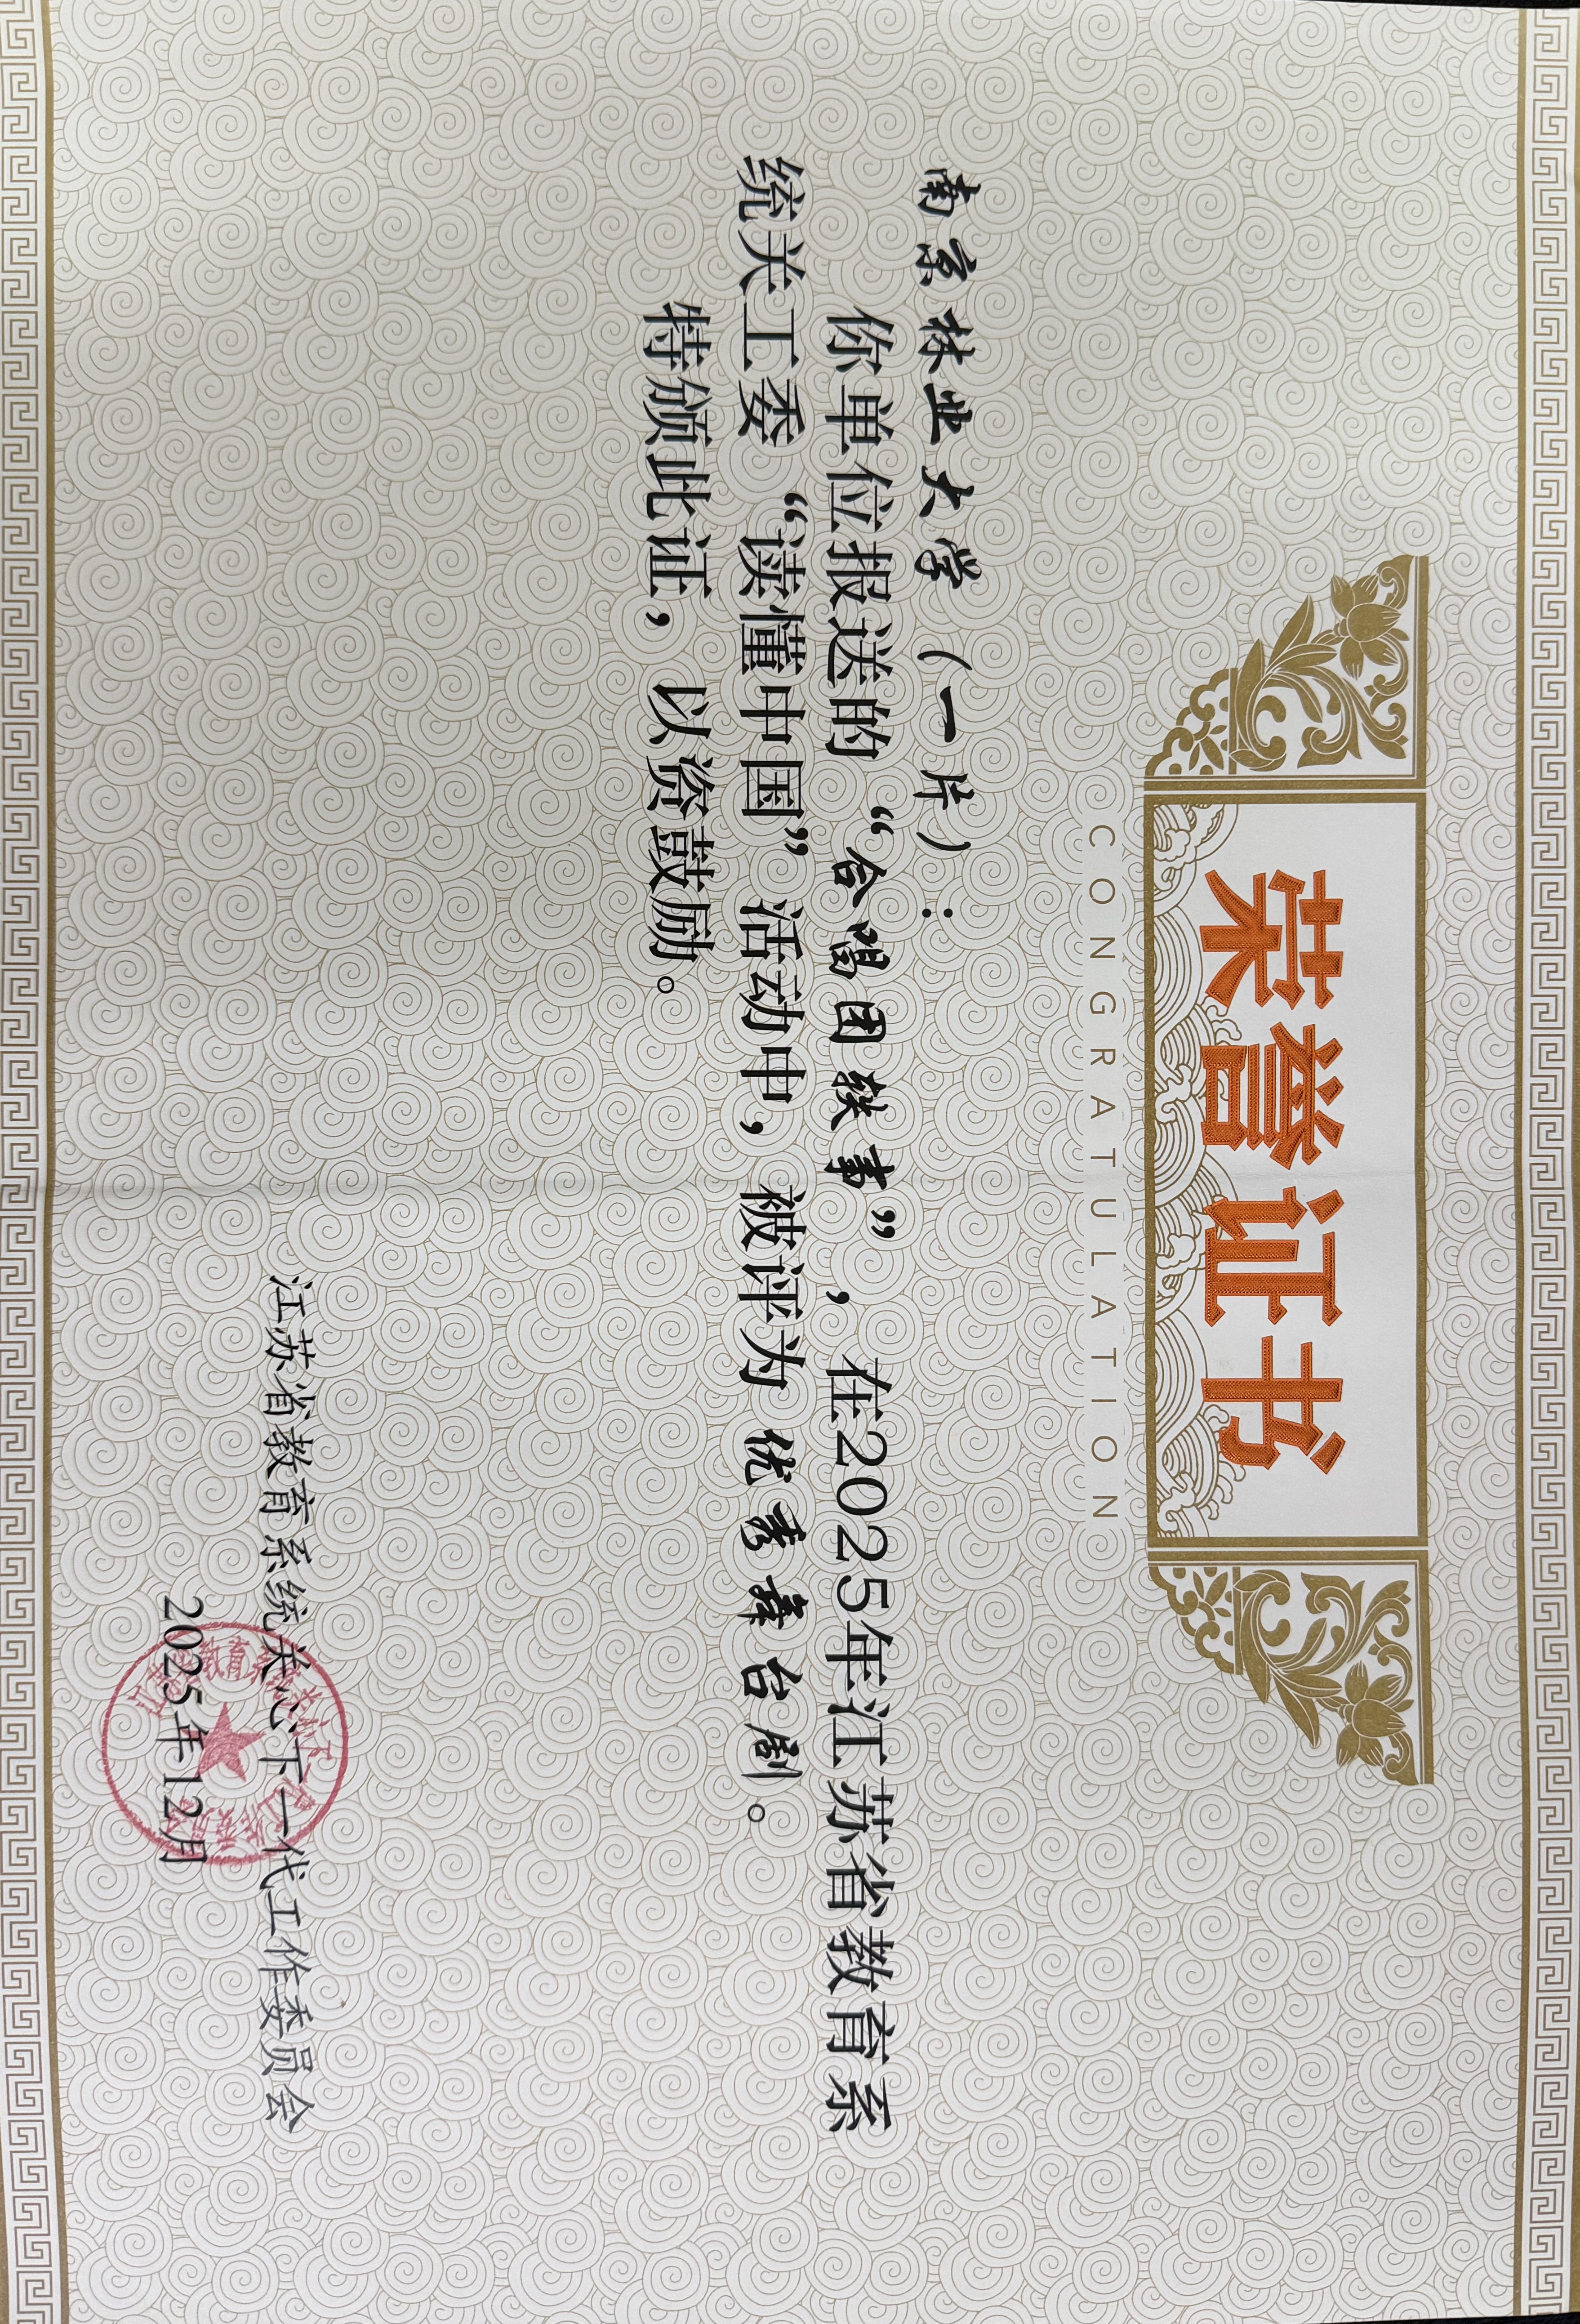 荣誉证书
CONGRATULATION
南京林业大学（一片）：
你单位报送的“合唱团轶事”，在2025年江苏省教育系
统关工委“读懂中国”活动中，被评为优秀舞台剧。
特颁此证，以资鼓励。
江苏省教育系统关心下一代工作委员会
2025年12月